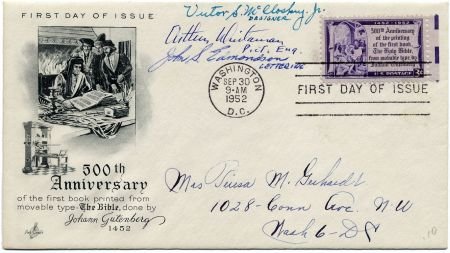 FIRST DAY OF ISSUE
Victor S. McCloskey, Jr.
DESIGNER
Pict. Eng.
John S. Edmondson
LETTERING
WASHINGTON
SEP 30
9-AM
1952
D.C.
1452-1952
500th Anniversary
of the printing
of the first book,
The Holy Bible,
from movable type,
by
Johann Gutenberg
U.S. POSTAGE 3¢
FIRST DAY OF ISSUE
500th
Anniversary
of the first book printed from
movable type-The Bible, done by
Johann Gutenberg
1452
Mrs M.
1028-Conn Ave. N.W
Wash 6-DC
10